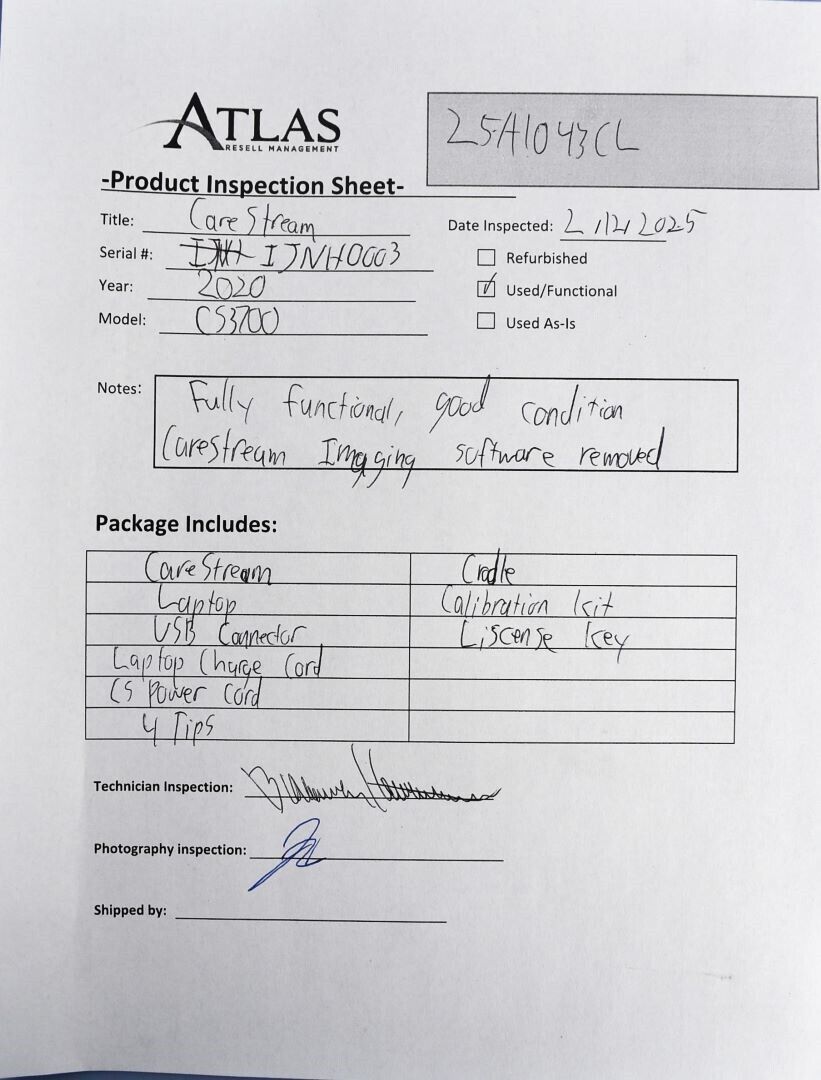 ATLAS
RESELL MANAGEMENT
25A1043CL
-Product Inspection Sheet-
Title: CareStream
Date Inspected:
Serial #: IJNH0003
Refurbished
Year: 2020
Used/Functional
Model: CS3700
Used As-Is
Notes: Fully functional, good condition
Carestream Imaging software removed
Package Includes:
CareStream Cradle
Laptop Calibration kit
USB Connector Liscense key
Laptop Charge Cord
CS Power Cord
4 Tips
Technician Inspection:
Photography inspection:
Shipped by: